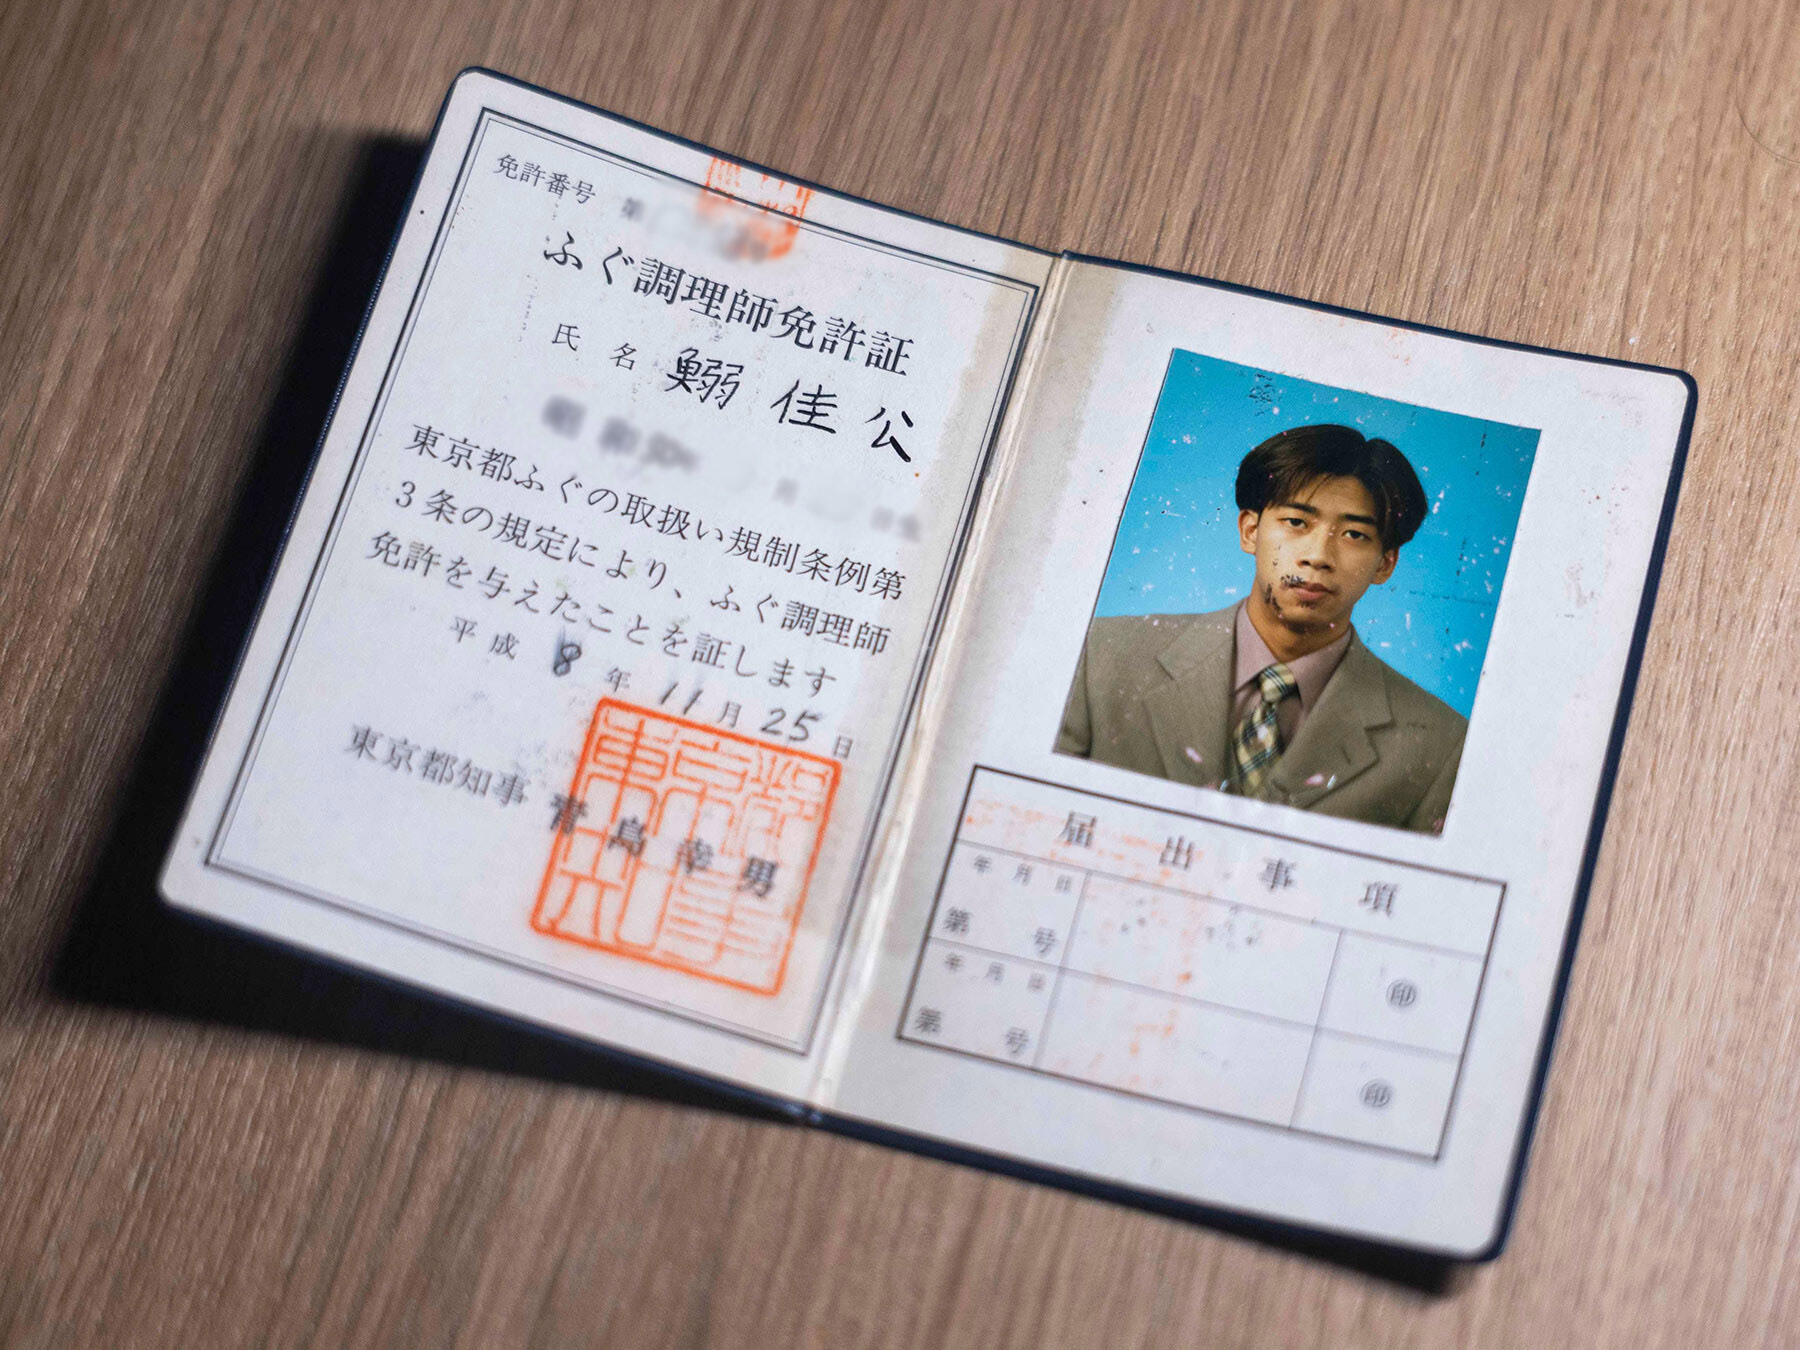 免許番号 第
ふぐ調理師免許証
氏名 鰯 佳公
東京都ふぐの取扱い規制条例第
3条の規定により、ふぐ調理師
免許を与えたことを証します
平成8年11月25日
東京都知事 青島幸男
届出事項
年月日
第 号
印
年月日
第 号
印